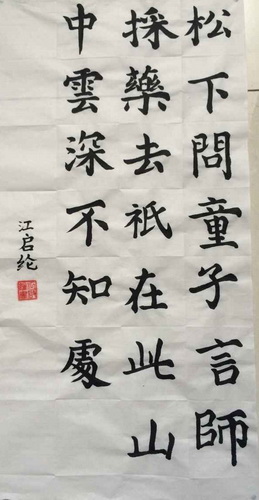 松下問童子言師
採藥去祇在此山
中雲深不知處
江启纶